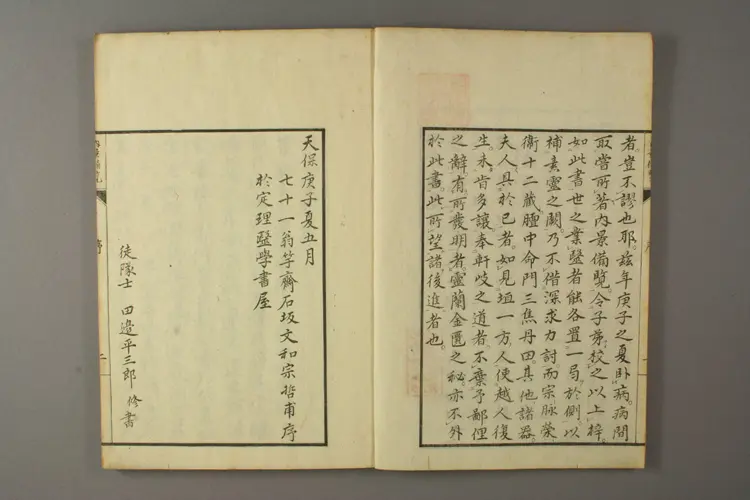 者豈不謬也耶。茲年庚子之夏臥病。病間
取嘗所著內景備覽。令子校之以上梓。
如此書世之業醫者能各置一局於側。以
補素靈之闕。乃不偕深求力討。而宗脉榮
衛十二藏膻中命門三焦丹田。其他諸器。
夫人具於己者。如見垣一方人。使越人復
生。未肯多讓。奉軒岐之道者。不棄予鄙俚
之辭。有所發明者。靈蘭金匱之秘。亦不外
於此書。此所望諸後進者也。
天保庚子夏五月
七十一翁竽齋石坂文和宗哲甫序
於定理醫學書屋
徒隊士 田邉平三郎 修書
序
二